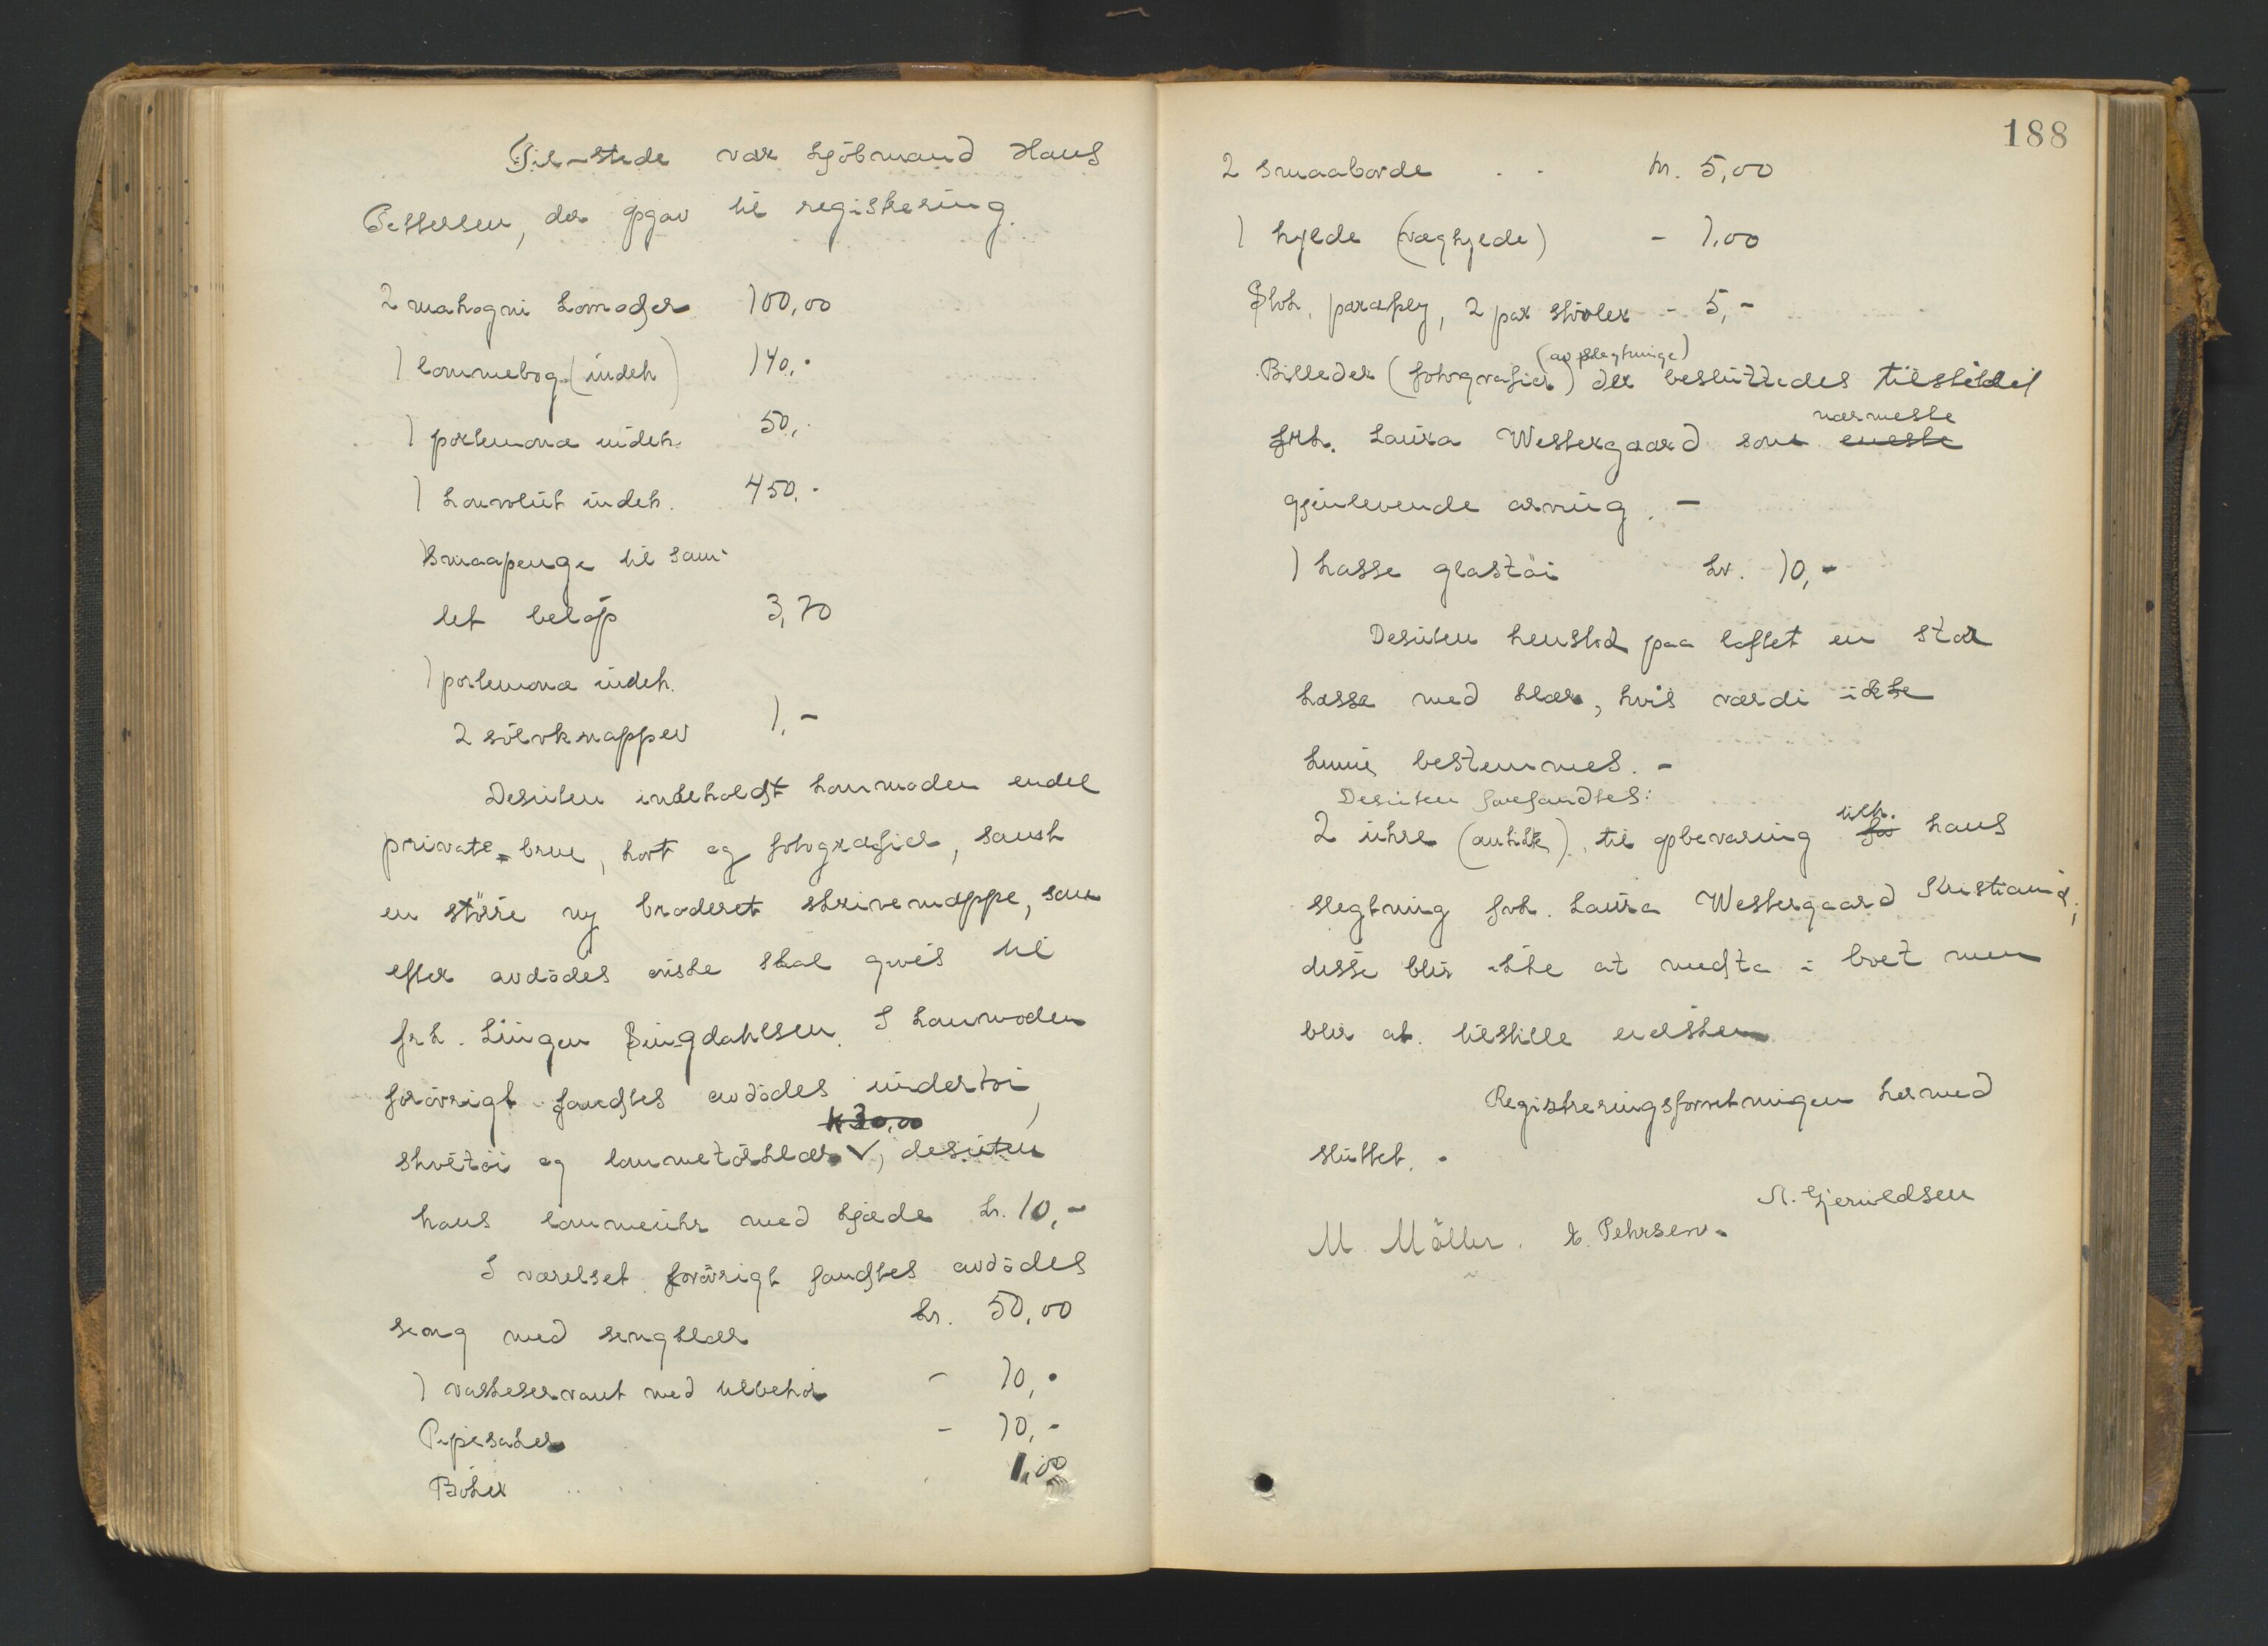 Til-stede var kjöbmand Hans
Pettersen, der opgav til registrering.
2 mahogni komoder 100,00
1 lommebog (indeh) 140,-
1 portemonæ indeh. 50,-
1 konvolut indeh. 450,-
Smaapenge til sam-
let belöp 3,70
1 portemonæ indeh.
2 sölvknapper 1,-
Desuten indeholdt kommoden endel
private breve, kort og fotografier, samt
en större ny broderet skrivemappe, som
efter avdödes önske skal gives til
frk. Singdahlsen. I kommoden
forövrigt fandtes avdödes undertöi,
kr 30,00
skotöi og lommetörklær ✓, desuten
hans lommeuhr med kjæde kr. 10,-
I værelset forövrigt fandtes avdödes
seng med sengklær kr. 50,00
1 vaskeservant med tilbehör - 10,-
Pipesaker - 10,-
Böker .. . 1,00
188
2 smaaborde . . kr. 5,00
1 hylde (væghylde) - 1,00
Stok, paraply, 2 par stövler - 5,-
(av slegtninge)
Billeder (fotografier) der besluttedes tilstillet
nærmeste
frk. Laura Westergaard som eneste
gjenlevende arving. -
1 kasse glastöi kr. 10,-
Desuten henstod paa loftet en stor
kasse med klær, hvis værdi ikke
kunne bestemmes. -
Desuten forefandtes:
tilh.
2 uhre (antikk) til opbevaring for hans
slegtning frk. Laura Westergaard Kristiania;
disse blir ikke at medta i boet men
blir at tilstille eiersken
Registreringsforretningen hermed
sluttet. -
N. Gjeruldsen
M. Möller. E. Pehrsen.